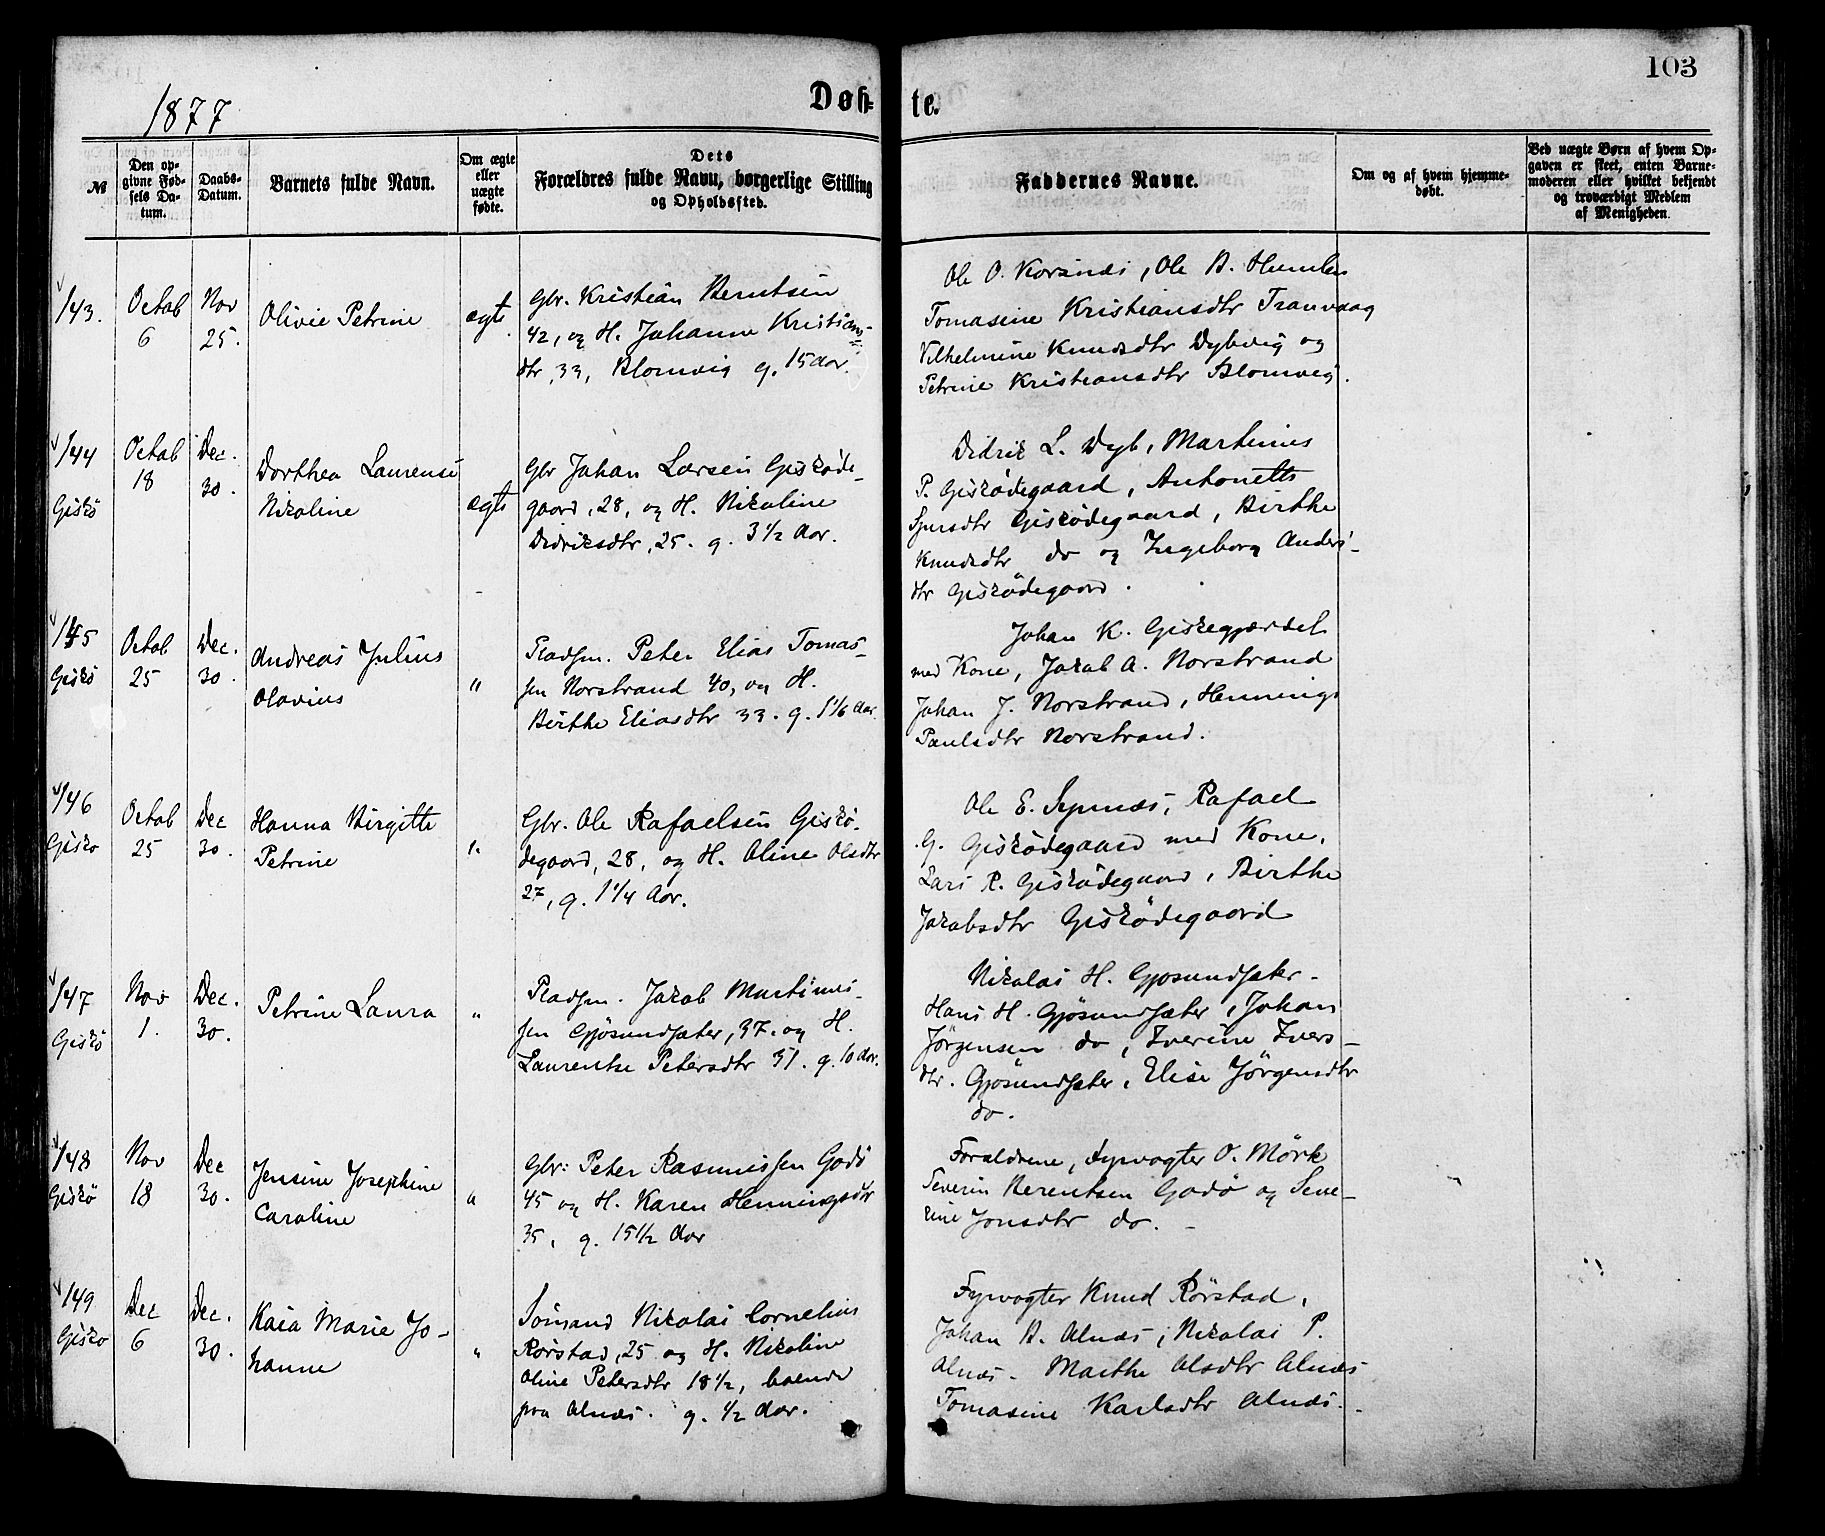 103
1877
Døb-
te.
№
Den op-
givne Fød-
sels Da-
tum.
Daabs-
Datum.
Barnets fulde Navn.
Om ægte
eller
uægte
fødte.
Dets
Forældres fulde Navn, borgerlige Stilling
og Opholdssted.
Faddernes Navne.
Om og af hvem hjemme-
døbt.
Ved uægte Børn af hvem Op-
gaven er skeet, enten Barne-
moderen eller hvilket bekjendt
og troværdigt Medlem
af Menigheden.
143.
Octob
6
Nov
25.
Olivie Petrine
ægte.
Gbr. Kristian Berntsen
42, og H. Johanne Kristians-
dtr, 33, Blomvig g. 15 Aar.
Ole O. Korsnæs, Ole B. Humlen
Tomasine Kristiansdtr Tranvaag
Vilhelmine Knudsdtr Dybvig og
Petrine Kristiansdtr Blomvig.
144
Giskö
Octob
18
Dec.
30.
Dorthea Laurense
Nikoline
ægte
Gbr Johan Larsen Giskøde-
gaard, 28, og H. Nikoline
Didriksdtr, 25. g. 3 1/2 Aar.
Didrik L. Dyb, Martinus
P. Giskødegaard, Antonette
Sjursdtr Giskødegaard, Birthe
Knudsdtr do og Ingeborg Anders-
dtr Giskødegaard.
145
Giskö
Octob
25
Dec.
30.
Andreas Julius
Olavius
"
Pladsm. Peter Elias Tomas-
sen Norstrand 40, og H.
Birthe Eliasdtr 33. g. 1 1/6 Aar.
Johan K. Giskegjerdet
med Kone, Jakob A. Norstrand
Johan J. Norstrand, Hennings
Paulsdtr Norstrand.
146
Giskö
Octob
25
Dec
30.
Hanna Birgitte
Petrine
"
Gbr. Ole Rafaelsen Giskø-
degaard, 28, og H. Oline Olsdtr
27, g. 1 1/4 Aar.
Ole E. Synnæs, Rafael
G. Giskødegaard med Kone,
Lars R. Giskødegaard, Birthe
Jakobsdtr Giskødegaard
147
Giskö
Nov
1.
Dec.
30.
Petrine Laura
"
Pladsm. Jakob Martinus-
sen Gjøsundsæter, 37. og H.
Laurentse Petersdtr 31. g. 10 Aar.
Nikolai H. Gjøsundsæter-
Hans H. Gjøsundsæter, Johan
Jörgensen do, Iverine Ivers-
dtr. Gjøsundsæter, Elise Jörgensdtr
do.
148
Giskö
Nov
18
Dec
30.
Jensine Josephine
Caroline
"
Gbr: Peter Rasmussen Godö
45 og H. Karen Henningsdtr
35, g. 15 1/2 Aar
Forældrene, Fyrvogter O. Mörk
Severin Berentsen Godö og Seve-
rine Jonsdtr do.-
149
Giskö
Dec
6
Dec.
30.
Kaia Marie Jo-
hanne
"
Sömand Nikolai Cornelius
Rörstad, 25 og H. Nikoline
Oline Petersdtr 18 1/2, boende
paa Alnæs. g. 1/2 Aar.
Fyrvogter Knud Rörstad,
Johan B. Alnæs, Nikolai P.
Alnæs. Marthe Olsdtr Alnæs
Tomasine Karlsdtr Alnæs.-